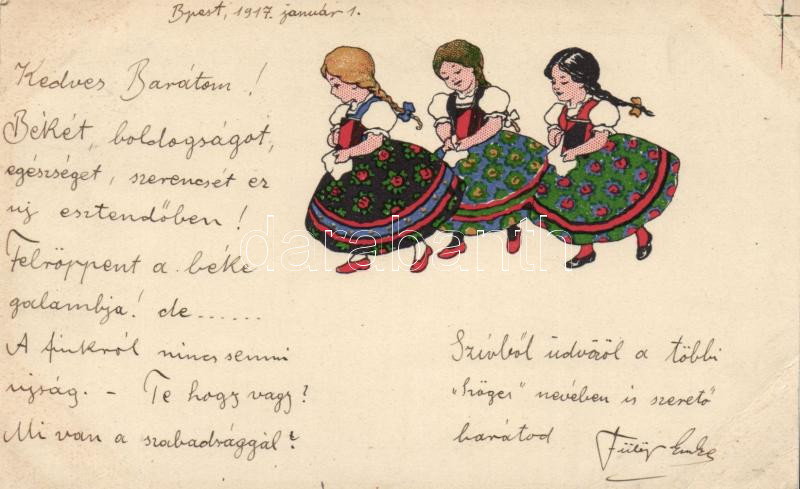 Bpest, 1917. január 1.
Kedves Barátom!
Békét, boldogságot,
egészséget, szerencsét ez
uj esztendőben!
Felröppent a béke
galambja! de......
A fiukról nincs semmi
ujság. - Te hogy vagy?
Mi van a szabadsággal?
Szívből üdvözöl a többi
nevében is szerető
barátod Fülöp
darabanth